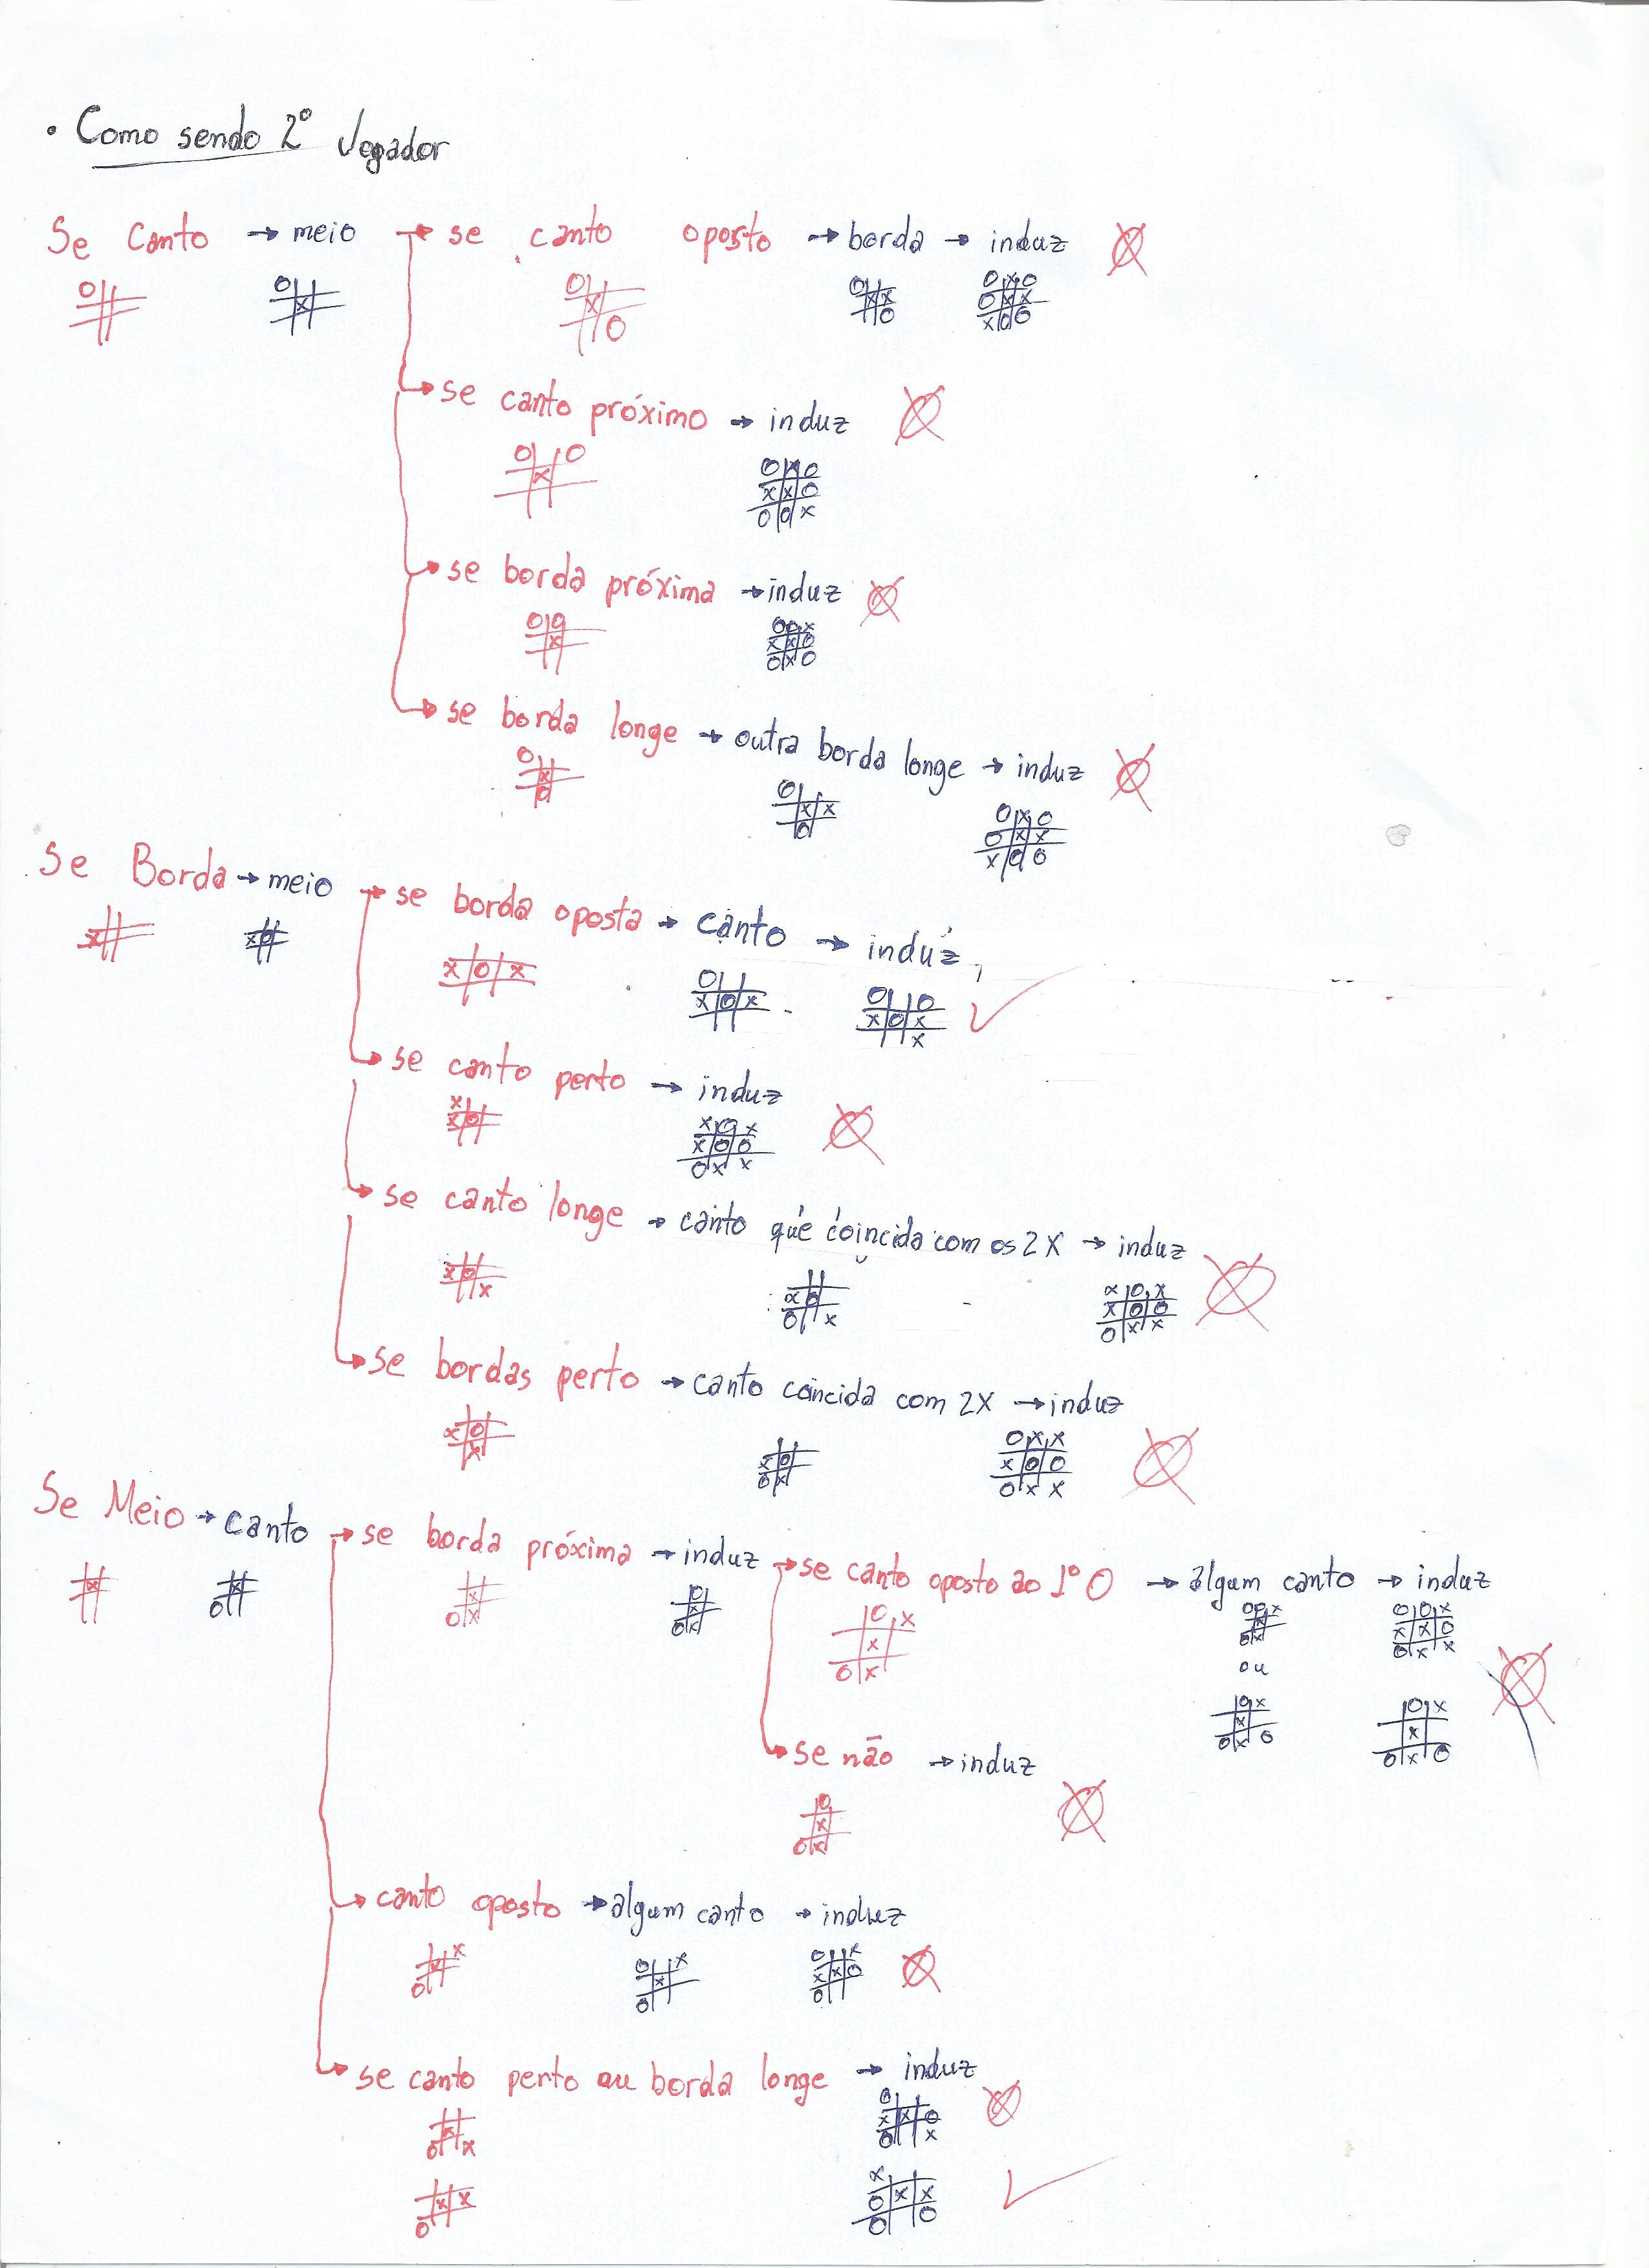 • Como sendo 2º Jogador
Se Canto → meio → se canto oposto → borda → induz
→ se canto próximo → induz
→ se borda próxima → induz
→ se borda longe → outra borda longe → induz
Se Borda → meio → se borda oposta → canto → induz
→ se canto perto → induz
→ se canto longe → canto que coincida com os 2X → induz
→ se bordas perto → canto coincida com 2X → induz
Se Meio → canto → se borda próxima → induz → se canto oposto ao 1º O → algum canto → induz
ou
→ se não → induz
→ canto oposto → algum canto → induz
→ se canto perto ou borda longe → induz